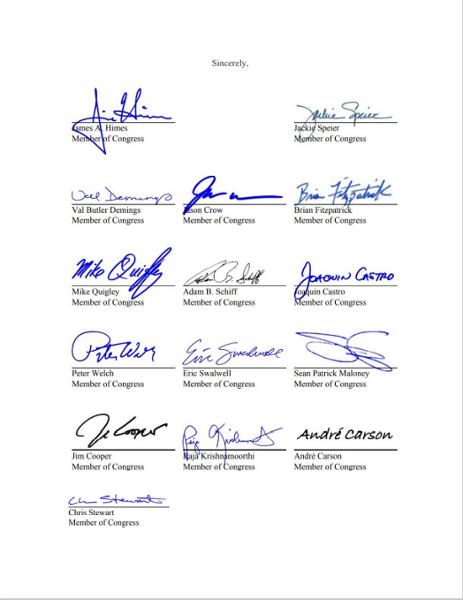 Sincerely,
Jim Himes
James A. Himes
Member of Congress
Jackie Speier
Jackie Speier
Member of Congress
Val Demings
Val Butler Demings
Member of Congress
Jason Crow
Member of Congress
Brian Fitzpatrick
Brian Fitzpatrick
Member of Congress
Mike Quigley
Mike Quigley
Member of Congress
Adam B. Schiff
Adam B. Schiff
Member of Congress
Joaquin Castro
Joaquin Castro
Member of Congress
Peter Welch
Peter Welch
Member of Congress
Eric Swalwell
Eric Swalwell
Member of Congress
Sean Patrick Maloney
Member of Congress
Jim Cooper
Member of Congress
Raja Krishnamoorthi
Member of Congress
André Carson
André Carson
Member of Congress
Chris Stewart
Chris Stewart
Member of Congress